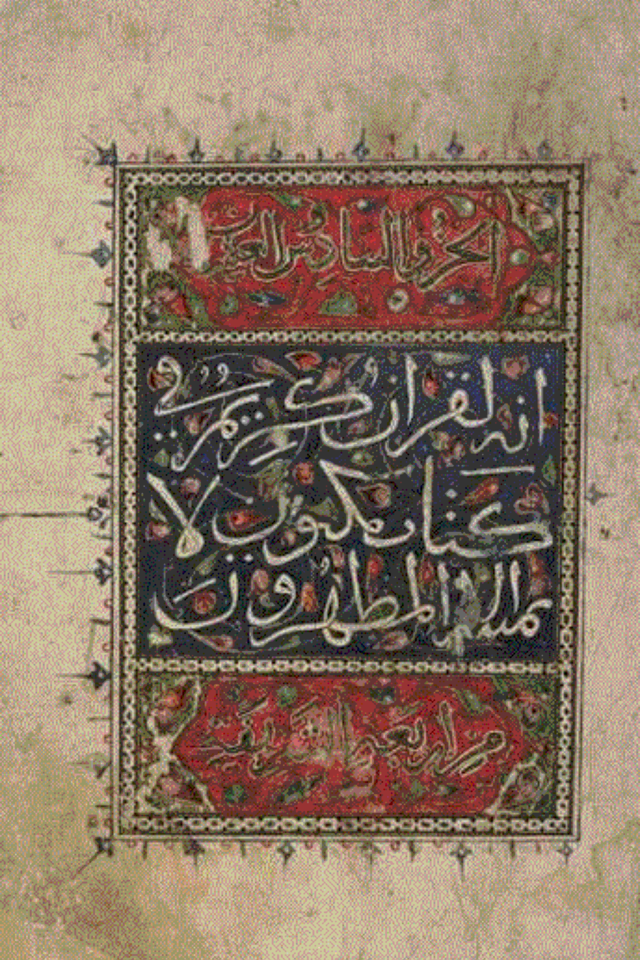 الجزو السادس العشر
انه لقران كريم في
كتاب مكنون لا
يمسه الا المطهرون
من الربعة الشريفة